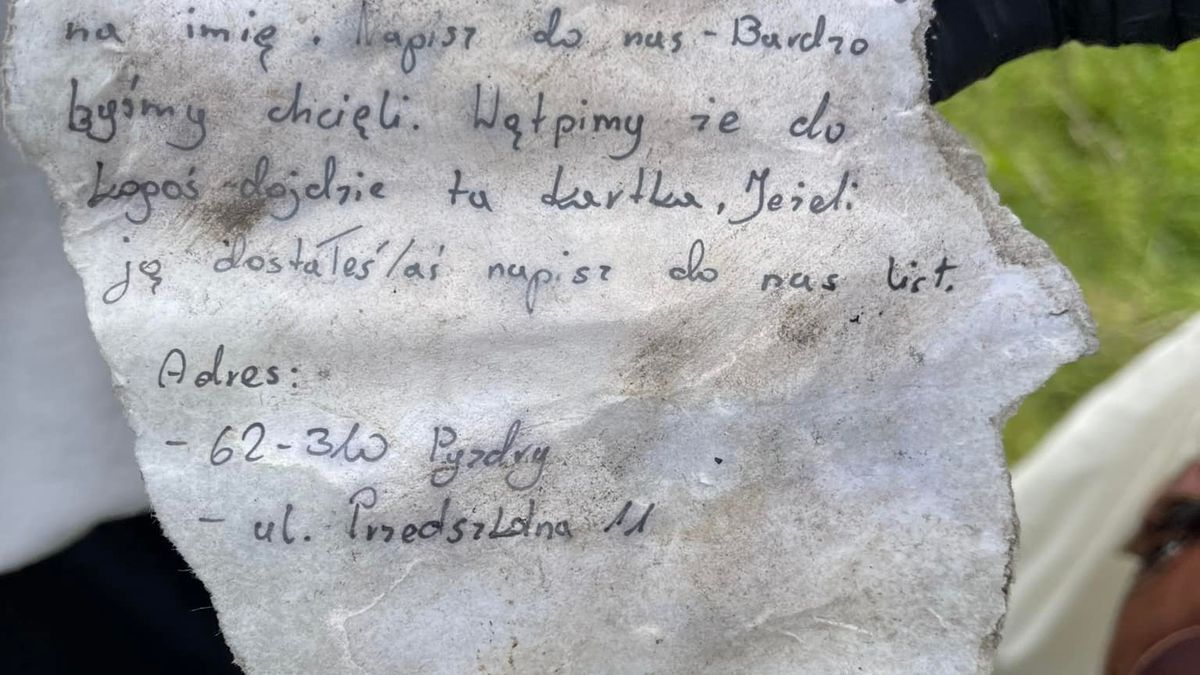 na imię. Napisz do nas - Bardzo
byśmy chcięli. Wątpimy że do
kogoś dojdzie ta kartka, Jeżeli
ją dostałeś/aś napisz do nas list.
Adres:
- 62-310 Pyzdry
- ul. Przedszkolna 11